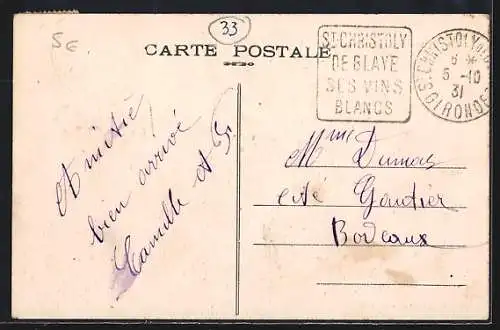 5€
33
CARTE POSTALE
ST CHRISTOLY
DE BLAYE
SES VINS
BLANCS
ST CHRISTOLY DE B
6 *
5 -10
31
GIRONDE
Amitié
bien arrivé
Camille et
Mme Dumas
Cité Gautier
Bordeaux